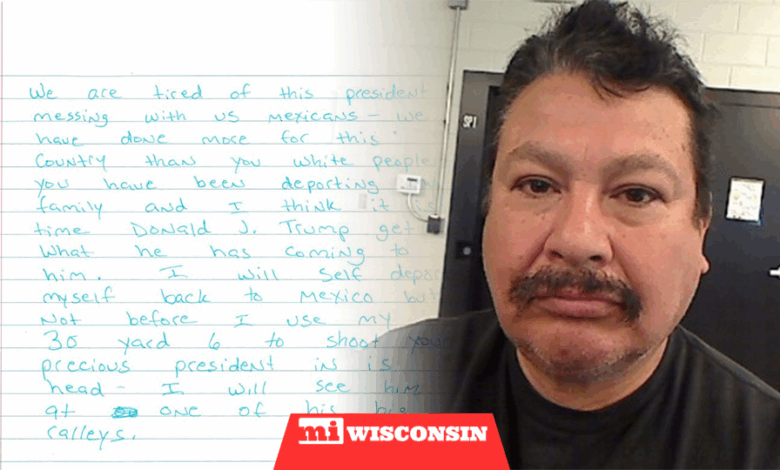 We are tired of this president
messing with us mexicans - we
have done more for this
Country than you white people
you have been deporting
family and I think it is
time Donald J. Trump get
what he has coming to
him. I will self depor
myself back to Mexico but
Not before I use my
30 yard 6 to shoot your
precious president in is
head - I will see him
at one of his big
ralleys.
SP1
mi WISCONSIN